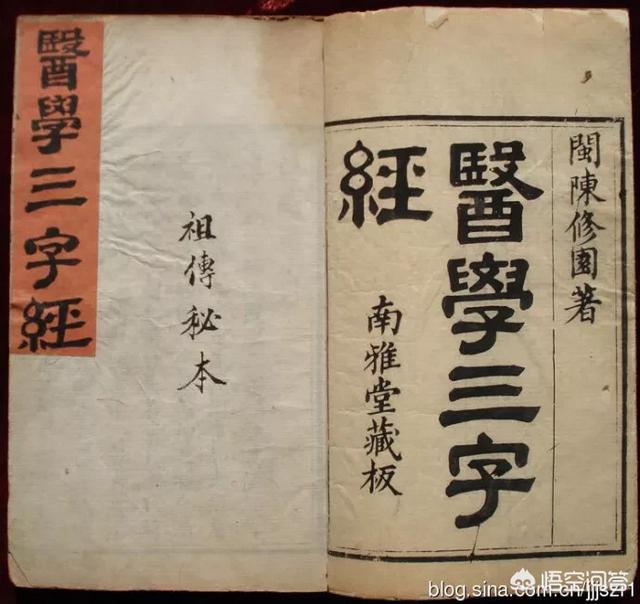 醫學三字經
祖傳秘本
閩陳修園著
醫學三字
經
南雅堂藏板
悟空问答
blog.sina.com.cn/jjjszf1